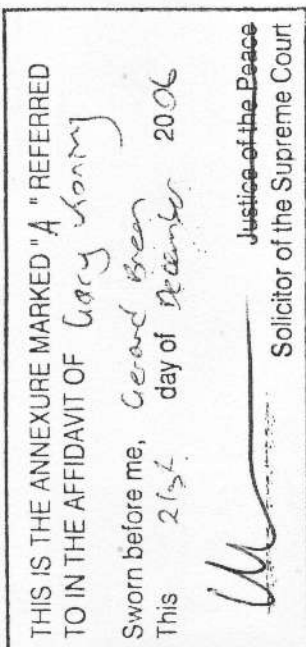 THIS IS THE ANNEXURE MARKED "A" REFERRED
TO IN THE AFFIDAVIT OF Gary
Sworn before me, Gerard Breen
This 21st day of December 2006
Justice of the Peace
Solicitor of the Supreme Court